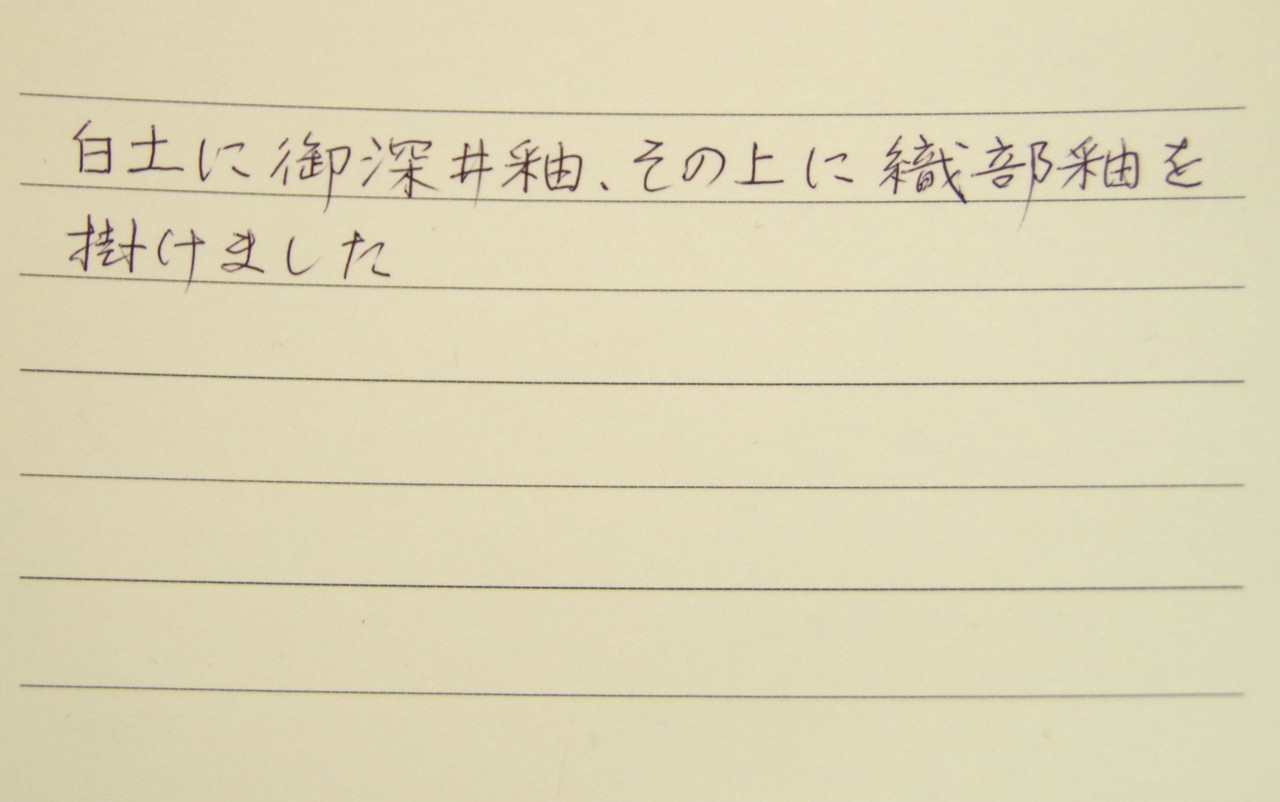 白土に御深井釉、その上に織部釉を
掛けました